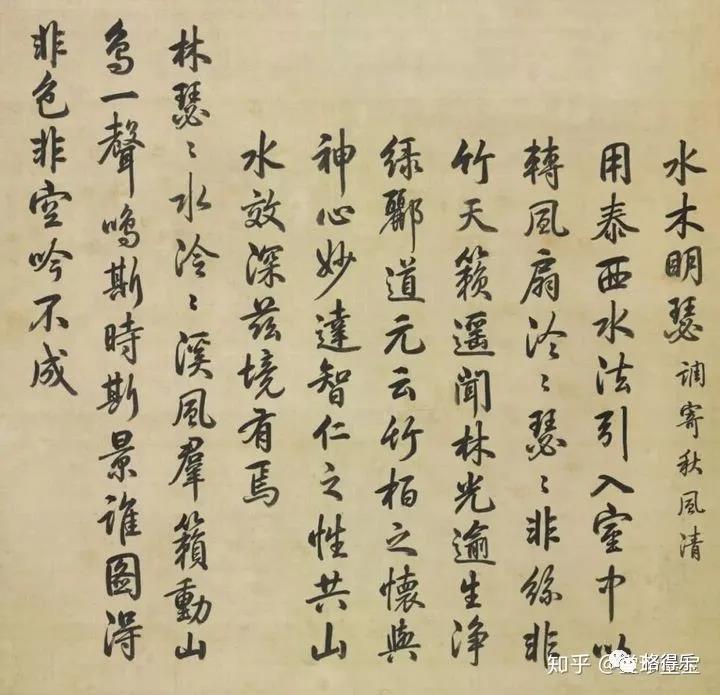 水木明瑟 調寄秋風清
用泰西水法引入室中以
轉風扇泠〻瑟〻非絲非
竹天籟遥聞林光逾生净
緑酈道元云竹柏之懷與
神心妙達智仁之性共山
水效深兹境有焉
林瑟〻水泠〻溪風羣籟動山
鳥一聲鳴斯時斯景誰圖得
非色非空吟不成
知乎
珞得乐